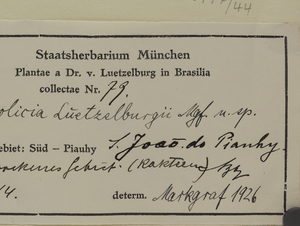 /44
Staatsherbarium München
Plantae a Dr. v. Luetzelburg in Brasilia
collectae Nr. 79.
olicia Luetzelburgii Mgf. n. sp.
ebiet: Süd - Piauhy S. João do Piauhy.
ockenes Gebiet. (Kakteen)
14. determ. Markgraf 1926